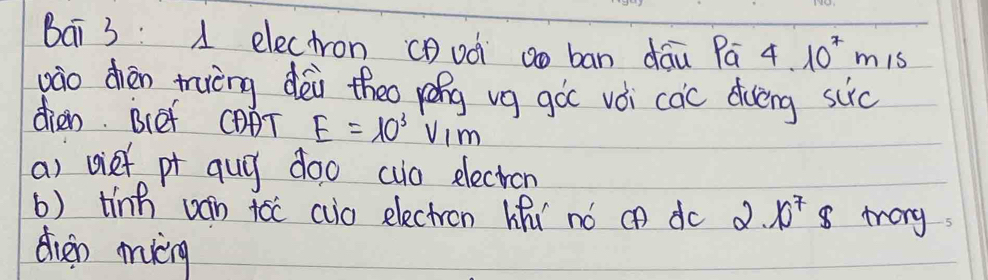 Bài 3: 1 electron CĐ với v0 ban đầu là 4.10⁷ m/s
vào điện trường đều theo phg vg góc với các đường sức
điện. Biết CĐĐT E = 10³ V/m
a) viết pt quỹ đạo của electron
b) tính vận tốc của electron khi nó CĐ đc 2.10⁷ s trong
điện trường